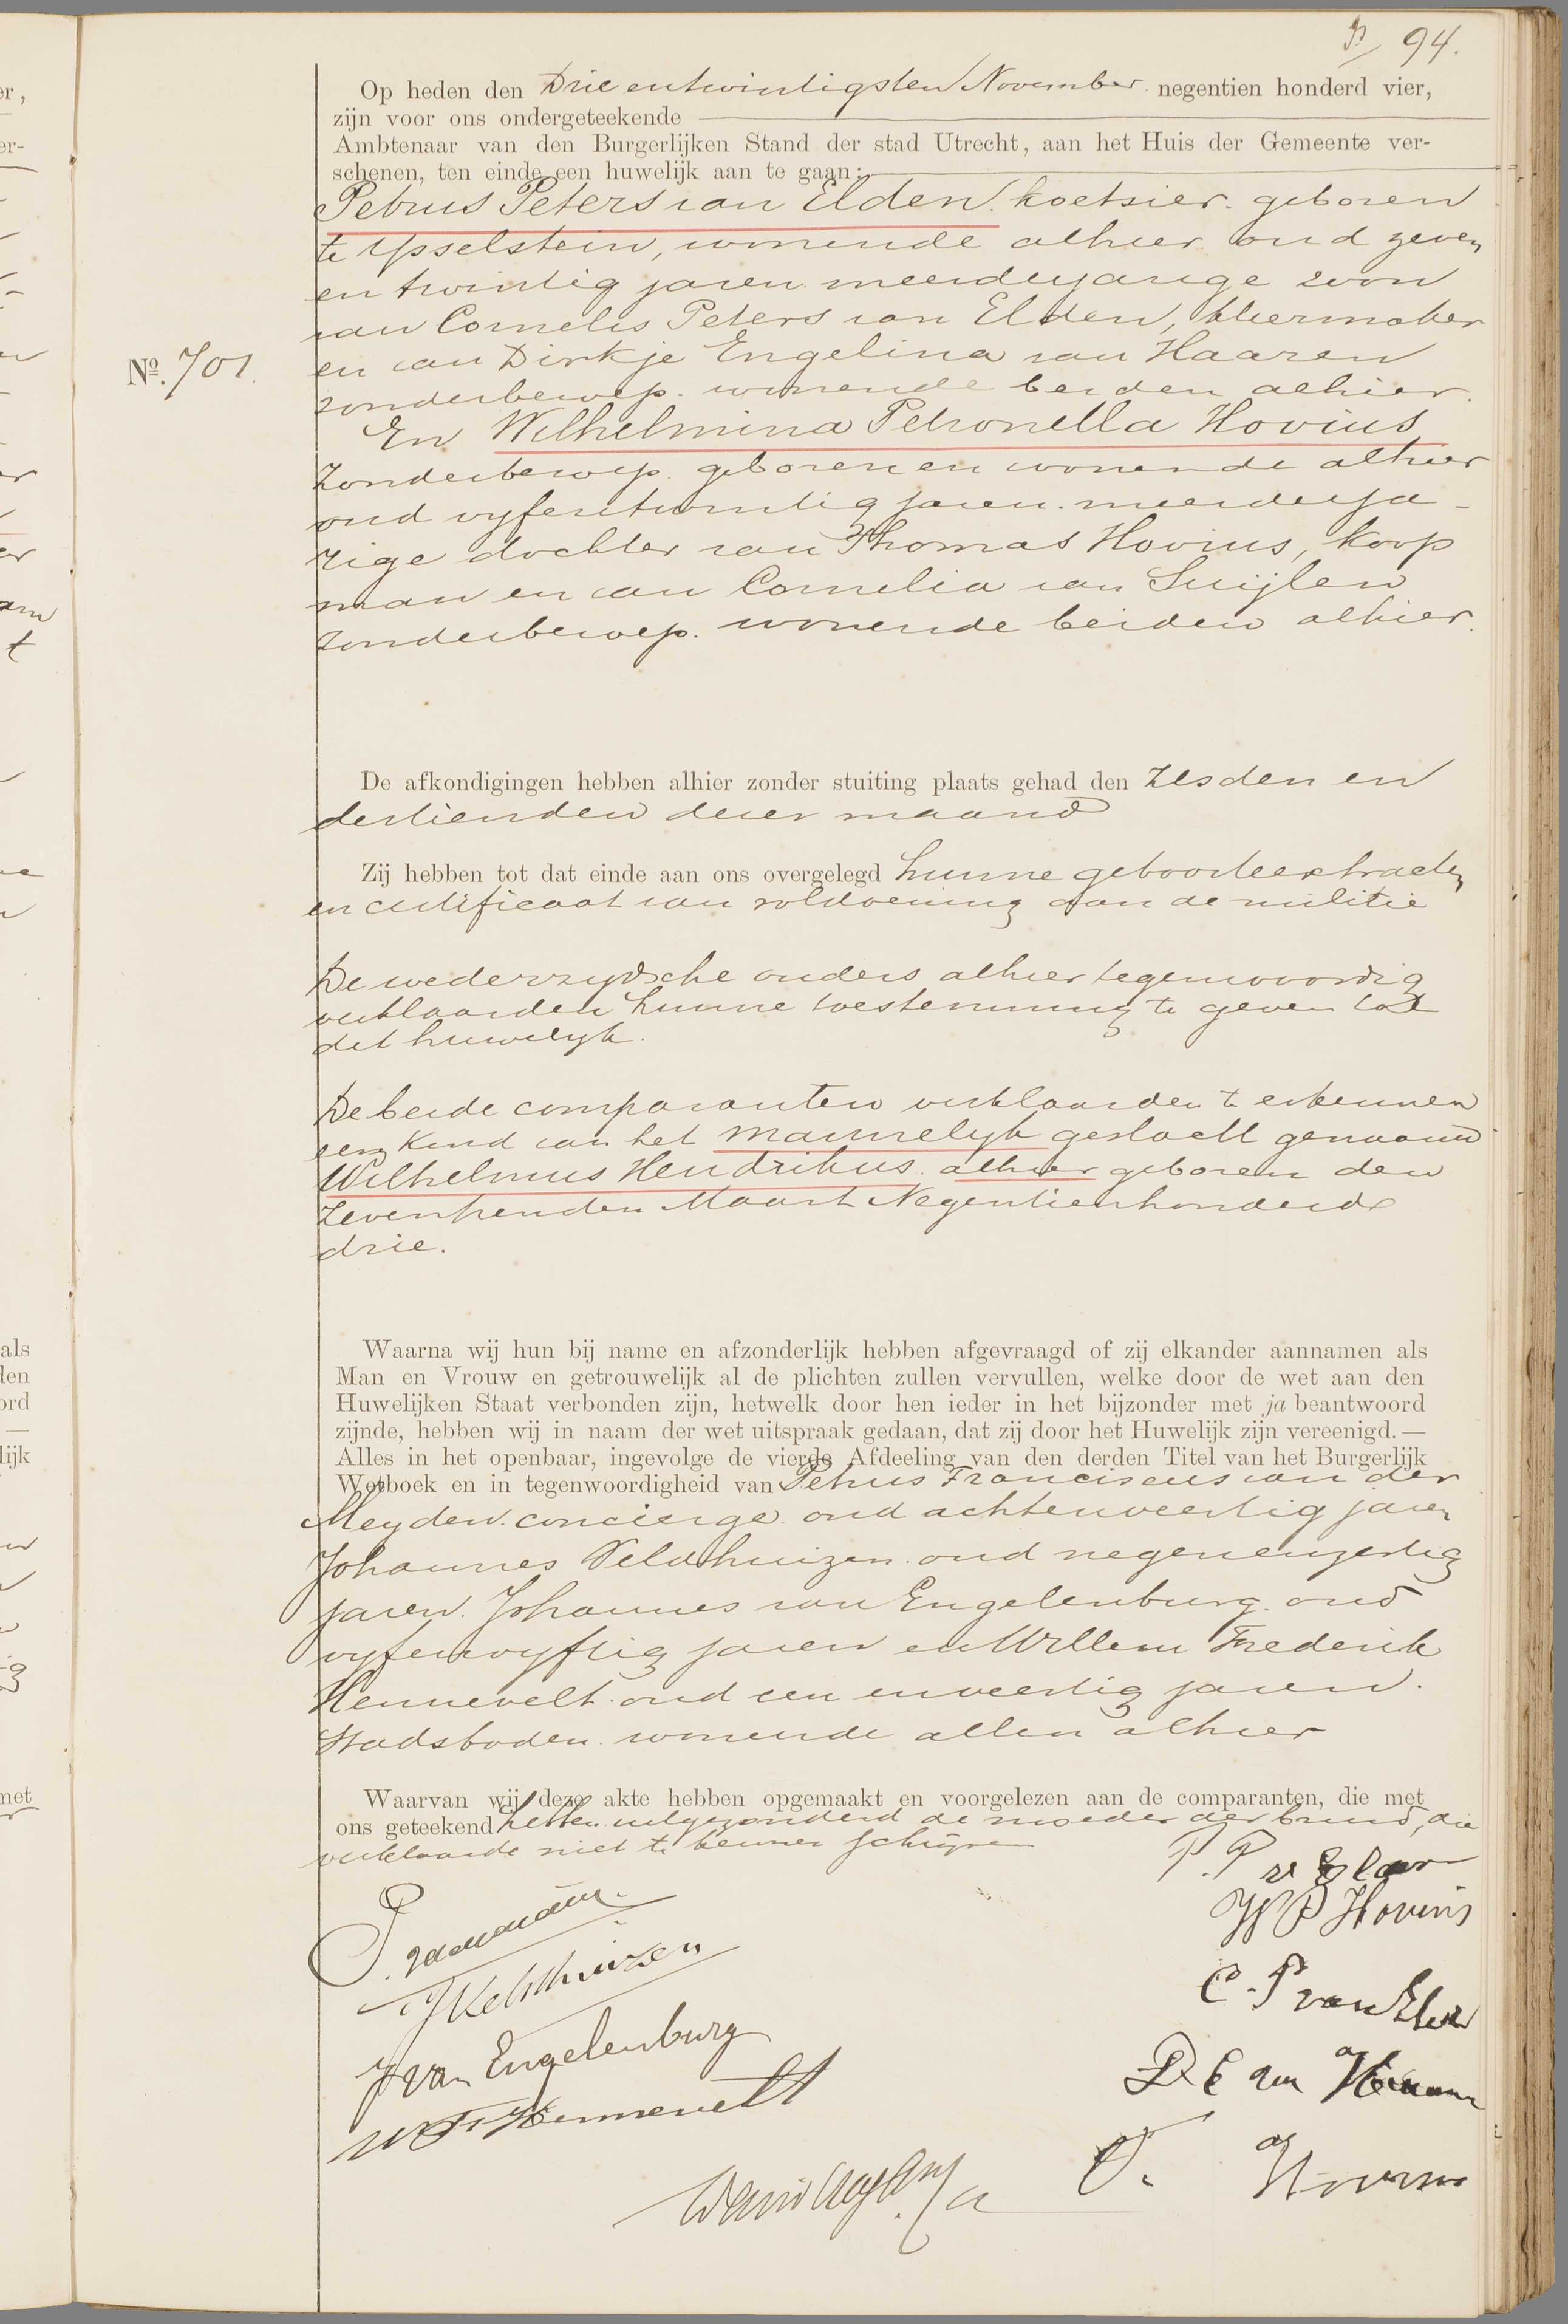 94.
Op heden den Drie entwintigsten November negentien honderd vier,
zijn voor ons ondergeteekende
Ambtenaar van den Burgerlijken Stand der stad Utrecht, aan het Huis der Gemeente ver-
schenen, ten einde een huwelijk aan te gaan:
Petrus Peters van Elden. koetsier. geboren
te Ysselstein, wonende alhier oud zeven
en twintig jaren meerderjarige zoon
van Cornelis Peters van Elden, kleermaker
No. 701.
en van Dirkje Engelina van Haaren
zonderberoep. wonende beiden alhier.
En Wilhelmina Petronella Hovius
zonderberoep. geboren en wonende alhier
oud vyfentwintig jaren. meerderja-
rige dochter van Thomas Hovius, koop
man en van Cornelia van Suijlen
zonderberoep. wonende beiden alhier.
De afkondigingen hebben alhier zonder stuiting plaats gehad den zesden en
dertienden dezer maand
Zij hebben tot dat einde aan ons overgelegd hunne geboorteextracten
en certificaat van voldoening aan de militie
De wederzydsche ouders alhier tegenwoordig
verklaarden hunne toestemming te geven tot
dit huwelyk.
De beide comparanten verklaarden te erkennen
een Kind van het mannelyk geslacht genaamd
Wilhelmus Hendrikus. alhier geboren den
zeventienden Maart Negentienhonderd
drie.
Waarna wij hun bij name en afzonderlijk hebben afgevraagd of zij elkander aannamen als
Man en Vrouw en getrouwelijk al de plichten zullen vervullen, welke door de wet aan den
Huwelijken Staat verbonden zijn, hetwelk door hen ieder in het bijzonder met ja beantwoord
zijnde, hebben wij in naam der wet uitspraak gedaan, dat zij door het Huwelijk zijn vereenigd. —
Alles in het openbaar, ingevolge de vierde Afdeeling van den derden Titel van het Burgerlijk
Wetboek en in tegenwoordigheid van Petrus Franciscus van der
Meyden. concierge oud achtenveertig jaren
Johannes Veldhuizen. oud negenenzestig
jaren. Johannes van Engelenburg. oud
vyfenvyftig jaren en Willem Frederik
Hennevelt. oud een enveertig jaren.
Stadsboden. wonende allen alhier
Waarvan wij deze akte hebben opgemaakt en voorgelezen aan de comparanten, die met
ons geteekend hebben uitgezonderd de moeder der bruid, die
verklaarde niet te kunnen schrijven
P. P v Elden
W P Hovius
J Veldhuizen
C. P van Elden
J van Engelenburg
D E van Haaren
W F Hennevelt
T. Hovius